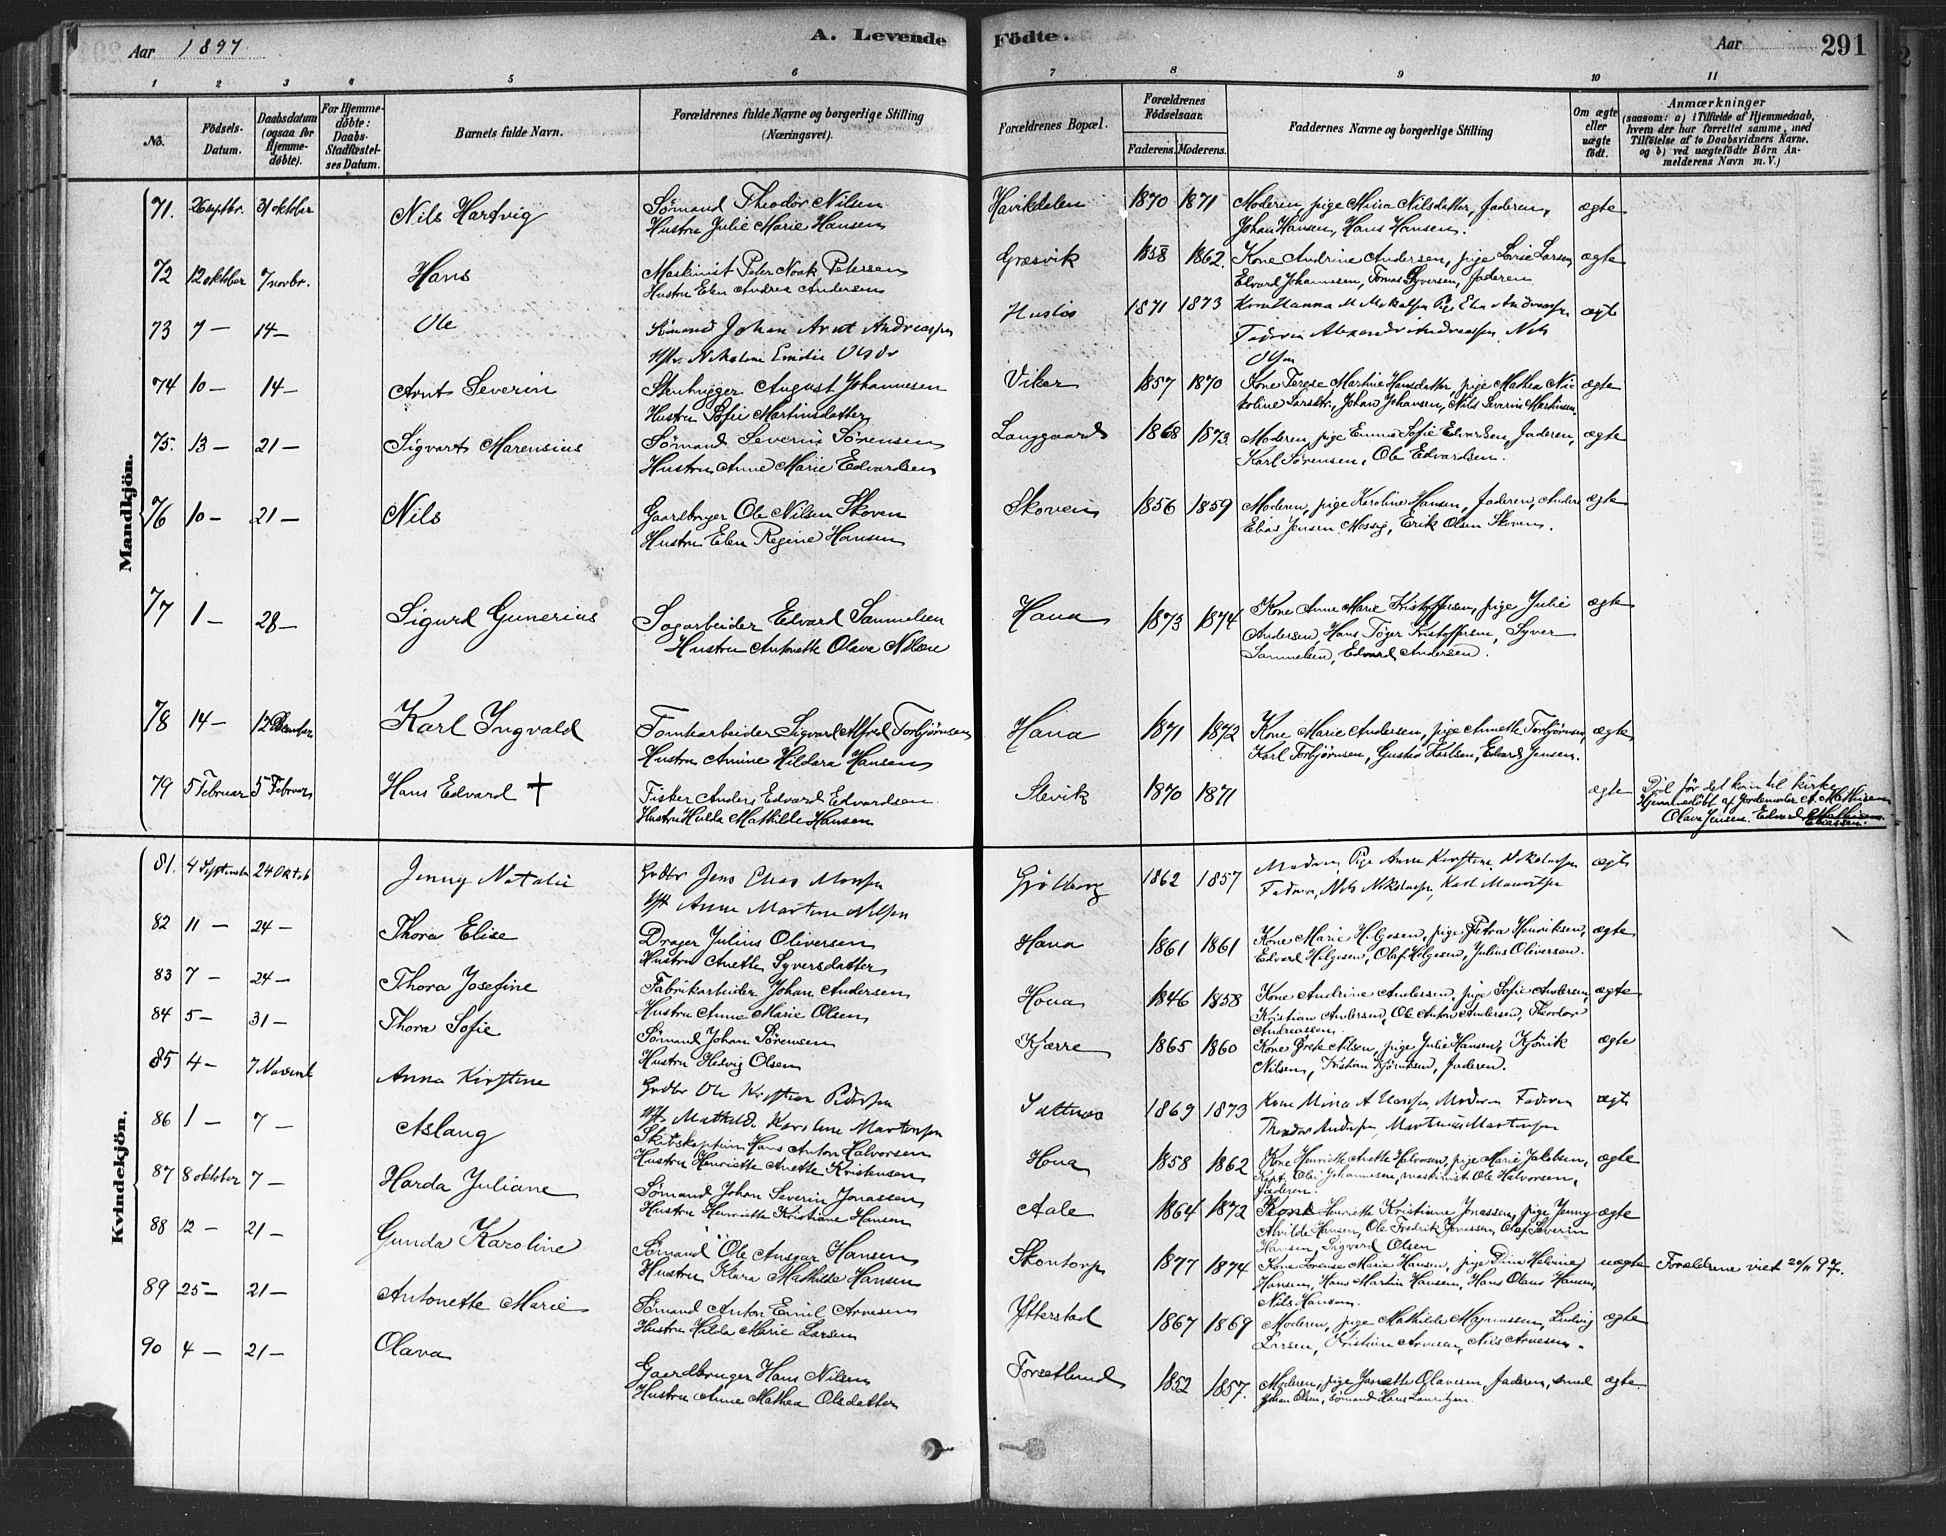 Aar 1897
A. Levende Födte.
Aar
291
1 2 3 4 5 6 7 8 9 10 11
No.
Födsels-Datum.
Daabsdatum (ogsaa for Hjemme-døbte).
For Hjemme-døbte: Daabs-Stadfæstel-ses Datum.
Barnets fulde Navn.
Forældrenes fulde Navne og borgerlige Stilling (Næringsvei).
Forældrenes Bopæl.
Forældrenes Födselsaar.
Faderens. Moderens.
Faddernes Navne og borgerlige Stilling
Om ægte eller uægte født.
Anmærkninger
(saasom: a) i Tilfælde af Hjemmedaab,
hvem der har forrettet samme, med
Tilföielse af to Daabsvidners Navne,
og b) ved uægtefødte Börn An-
melderens Navn m. V.)
Mandkjön.
71. 26 septbr. 31 oktober Nils Hartvig Sømand Theodor Nilsen Havikdalen 1870 1871 Moderen, pige Mina Nilsdatter, faderen, ægte
Hustru Julie Marie Hansen Johan Hansen, Hans Hansen.
72 12 oktober 7 novbr. Hans Maskinist Peter Noak Petersen Græsvik 1858 1862. Kone Andrine Andersen, pige Lovise Larsen ægte
Hustru Elen Andrea Andersen Edvard Johannessen, Tomas Syversen, faderen
73 7 — 14 — Ole Sømand Johan Arnt Andreassen 1871 1873 ægte
Olsen
74 10 — 14 — Arnt Severin Stenhugger August Johannesen Viker 1857 1870 Kone Terese Martine Hansdatter, pige Mathea Ni- ægte
Hustru Sofie Martinsdatter koline Larsdtr., Johan Johansen, Nils Severin Martinsen.
75. 13 — 21 — Sigvart Marensius Sømand Severin Sørensen Langgaard 1868 1873. Moderen, pige Emma Sofie Edvardsen, faderen, ægte
Hustru Anne Marie Edvardsen Karl Sørensen, Ole Edvardsen.
76 10 — 21 — Nils Gaardbruger Ole Nilsen Skoven Skoven 1856 1859 Moderen, pige Karoline Hansen, faderen, Anders ægte
Hustru Elen Regine Hansen Elias Jensen, Erik Olsen Skoven.
77 1 — 28 — Sigurd Gunerius Sagarbeider Edvard Samuelsen Hana 1873 1874 Kone Anne Marie Kristoffersen, pige Julie ægte
Hustru Antonette Olava Nilsen Andersen, Hans Tøger Kristoffersen, Syver
Samuelsen, Edvard Andersen.
78 14 — 12 Karl Yngvald Tomtearbeider Sigvard Alfred Torbjørnsen Hana 1871 1872 Kone Marie Andersen, pige Annette Torbjørnsen, ægte
Hustru Amine Hildara Hansen Karl Torbjørnsen, Gustav Karlsen, Edvard Jensen.
79 5 Februar 5 Februar Hans Edvard † Fisker Anders Edvard Edvardsen Slevik 1870 1871 ægte Død før det kom til kirke
Hustru Hulda Mathilde Hansen Hjemmedøbt af Jordemoder A. Mathisen
Olava Jensen. Edvard Eliassen.
Kvindekjön.
81. 4 Septembr 24 Oktob Jenny Natalie Grdbr Jens Elias 1862 1857 Moderen, Pige Anne Kirstine ægte
Anne Martine Nilsen
82 11 — 24 — Thora Elise Drager Julius Oliversen Hana 1861 1861 Kone Marie Helgesen, pige Petra Henriksen, ægte
Hustru Anette Syversdatter Edvard Helgesen, Olaf Helgesen, Julius Oliversen.
83 7 — 24 — Thora Josefine Fabrikarbeider Johan Andersen Hona 1846 1858 Kone Andrine Andersen, pige Sofie Andersen, ægte
Hustru Anne Marie Olsen Kristian Andersen, Ole Anton Andersen, Theodor
Andreassen.
84 5 — 31 — Thora Sofie Sømand Johan Sørensen Kjærre 1865 1860 Kone Grete Nilsen, pige Julie Hansen, Kjønik ægte
Hustru Hedvig Olsen Nilsen, Kristian Kjøniksen, faderen.
85 4 — 7 Novemb Anna Kirstine Grdbr Ole Kristian Pedersen 1869 1873 Kone Mina A Hansen Moderen Faderen ægte
Mathilde Karoline Martinsen Theodor Andersen, Martinius Martinsen
86 1 — 7 — Aslaug Skibskaptein Hans Anton Halvorsen Hona 1858 1862 Kone Henriette Anette Halvorsen, pige Marie Jakobsen, ægte
Hustru Henriette Anette Kristensen Kapt. Ole Johannesen, maskinist Ole Halvorsen,
faderen.
87 8 oktober 7 — Harda Juliane Sømand Johan Severin Jonassen Aale 1864 1872 Kone Henriette Kristiane Jonassen, pige Jenny ægte
Hustru Henriette Kristiane Hansen Alvilde Hansen, Ole Fredrik Jonassen, Olaf Severin
Hansen, Sigvard Olsen
88 12 — 21 — Gunda Karoline Sømand Ole Ansgar Hansen Skontorp 1877 1874 Kone Lovense Marie Hansen, pige Dina Helvine uægte Forældrene viet 20/11 97.
Hustru Klara Mathilde Hansen Hansen, Hans Martin Hansen, Hans Olaus Hansen,
Nils Hansen.
89 25 — 21 — Antonette Marie Sømand Anton Emil Arvesen Ytterstad 1867 1869 Moderen, pige Mathilde Magnussen, Ludvig ægte
Hustru Hilda Marie Larsen Larsen, Kristian Arvesen, Nils Arvesen.
90 4 — 21 — Olava Gaardbruger Hans Nilsen Forsetlund 1852 1857. Moderen, pige Janette Olavesen, faderen, smed ægte.
Hustru Anne Mathea Olsdatter Johan Olsen, sømand Hans Lauritzen.